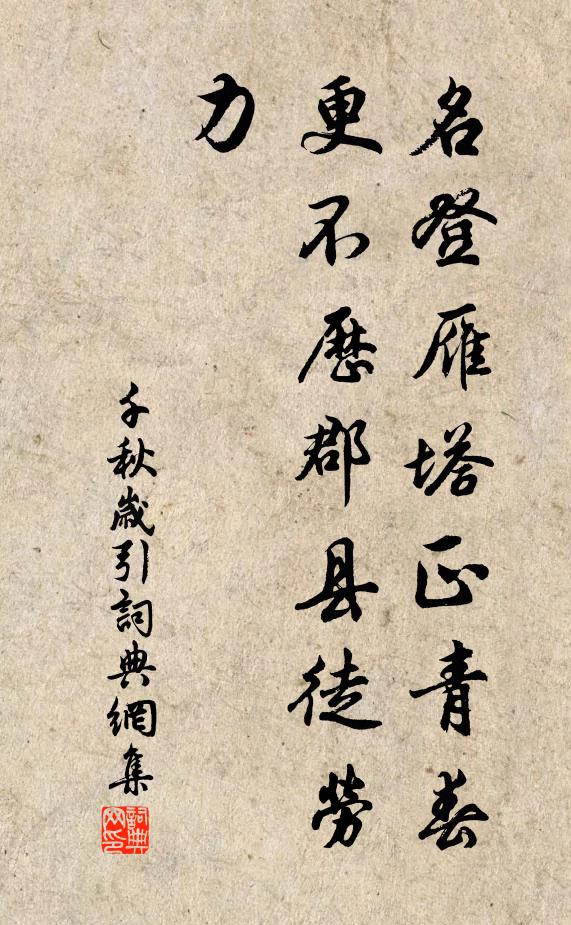 名登雁塔正青春
更不歷郡县徒勞
力
千秋歲引詞典網集
詞典
网印